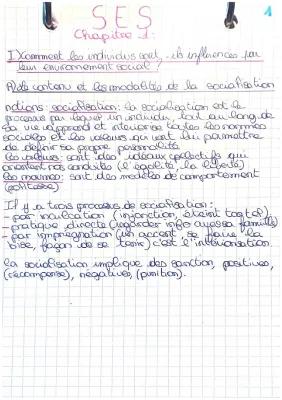 SES
1
Chapitre 1:
I) Comment les individus sont-ils influencés par
leur environnement social?
A) le contenu et les modalités de la socialisation
notions: socialisation: la socialisation est le
processus par lequel un individu, tout au long de
sa vie apprend et interiorise toutes les normes
sociales et les valeurs qui vont lui permettre
de définir sa propre personnalité
les valeurs: sont des idéaux collectifs qui
orientent nos conduites (l'égalité, la liberté)
les normes: sont des modèles de comportement
(politesse)
Il y a trois processus de socialisation:
- par inculcation (injonction, éteint ton tel)
- pratique directe (regarder info avec sa famille)
- par imprégnation (un accent, se faire la
bise, façon de se tenir) c'est l'intériorisation
la socialisation implique des sanction, positives,
(récompense), négatives, (punition).